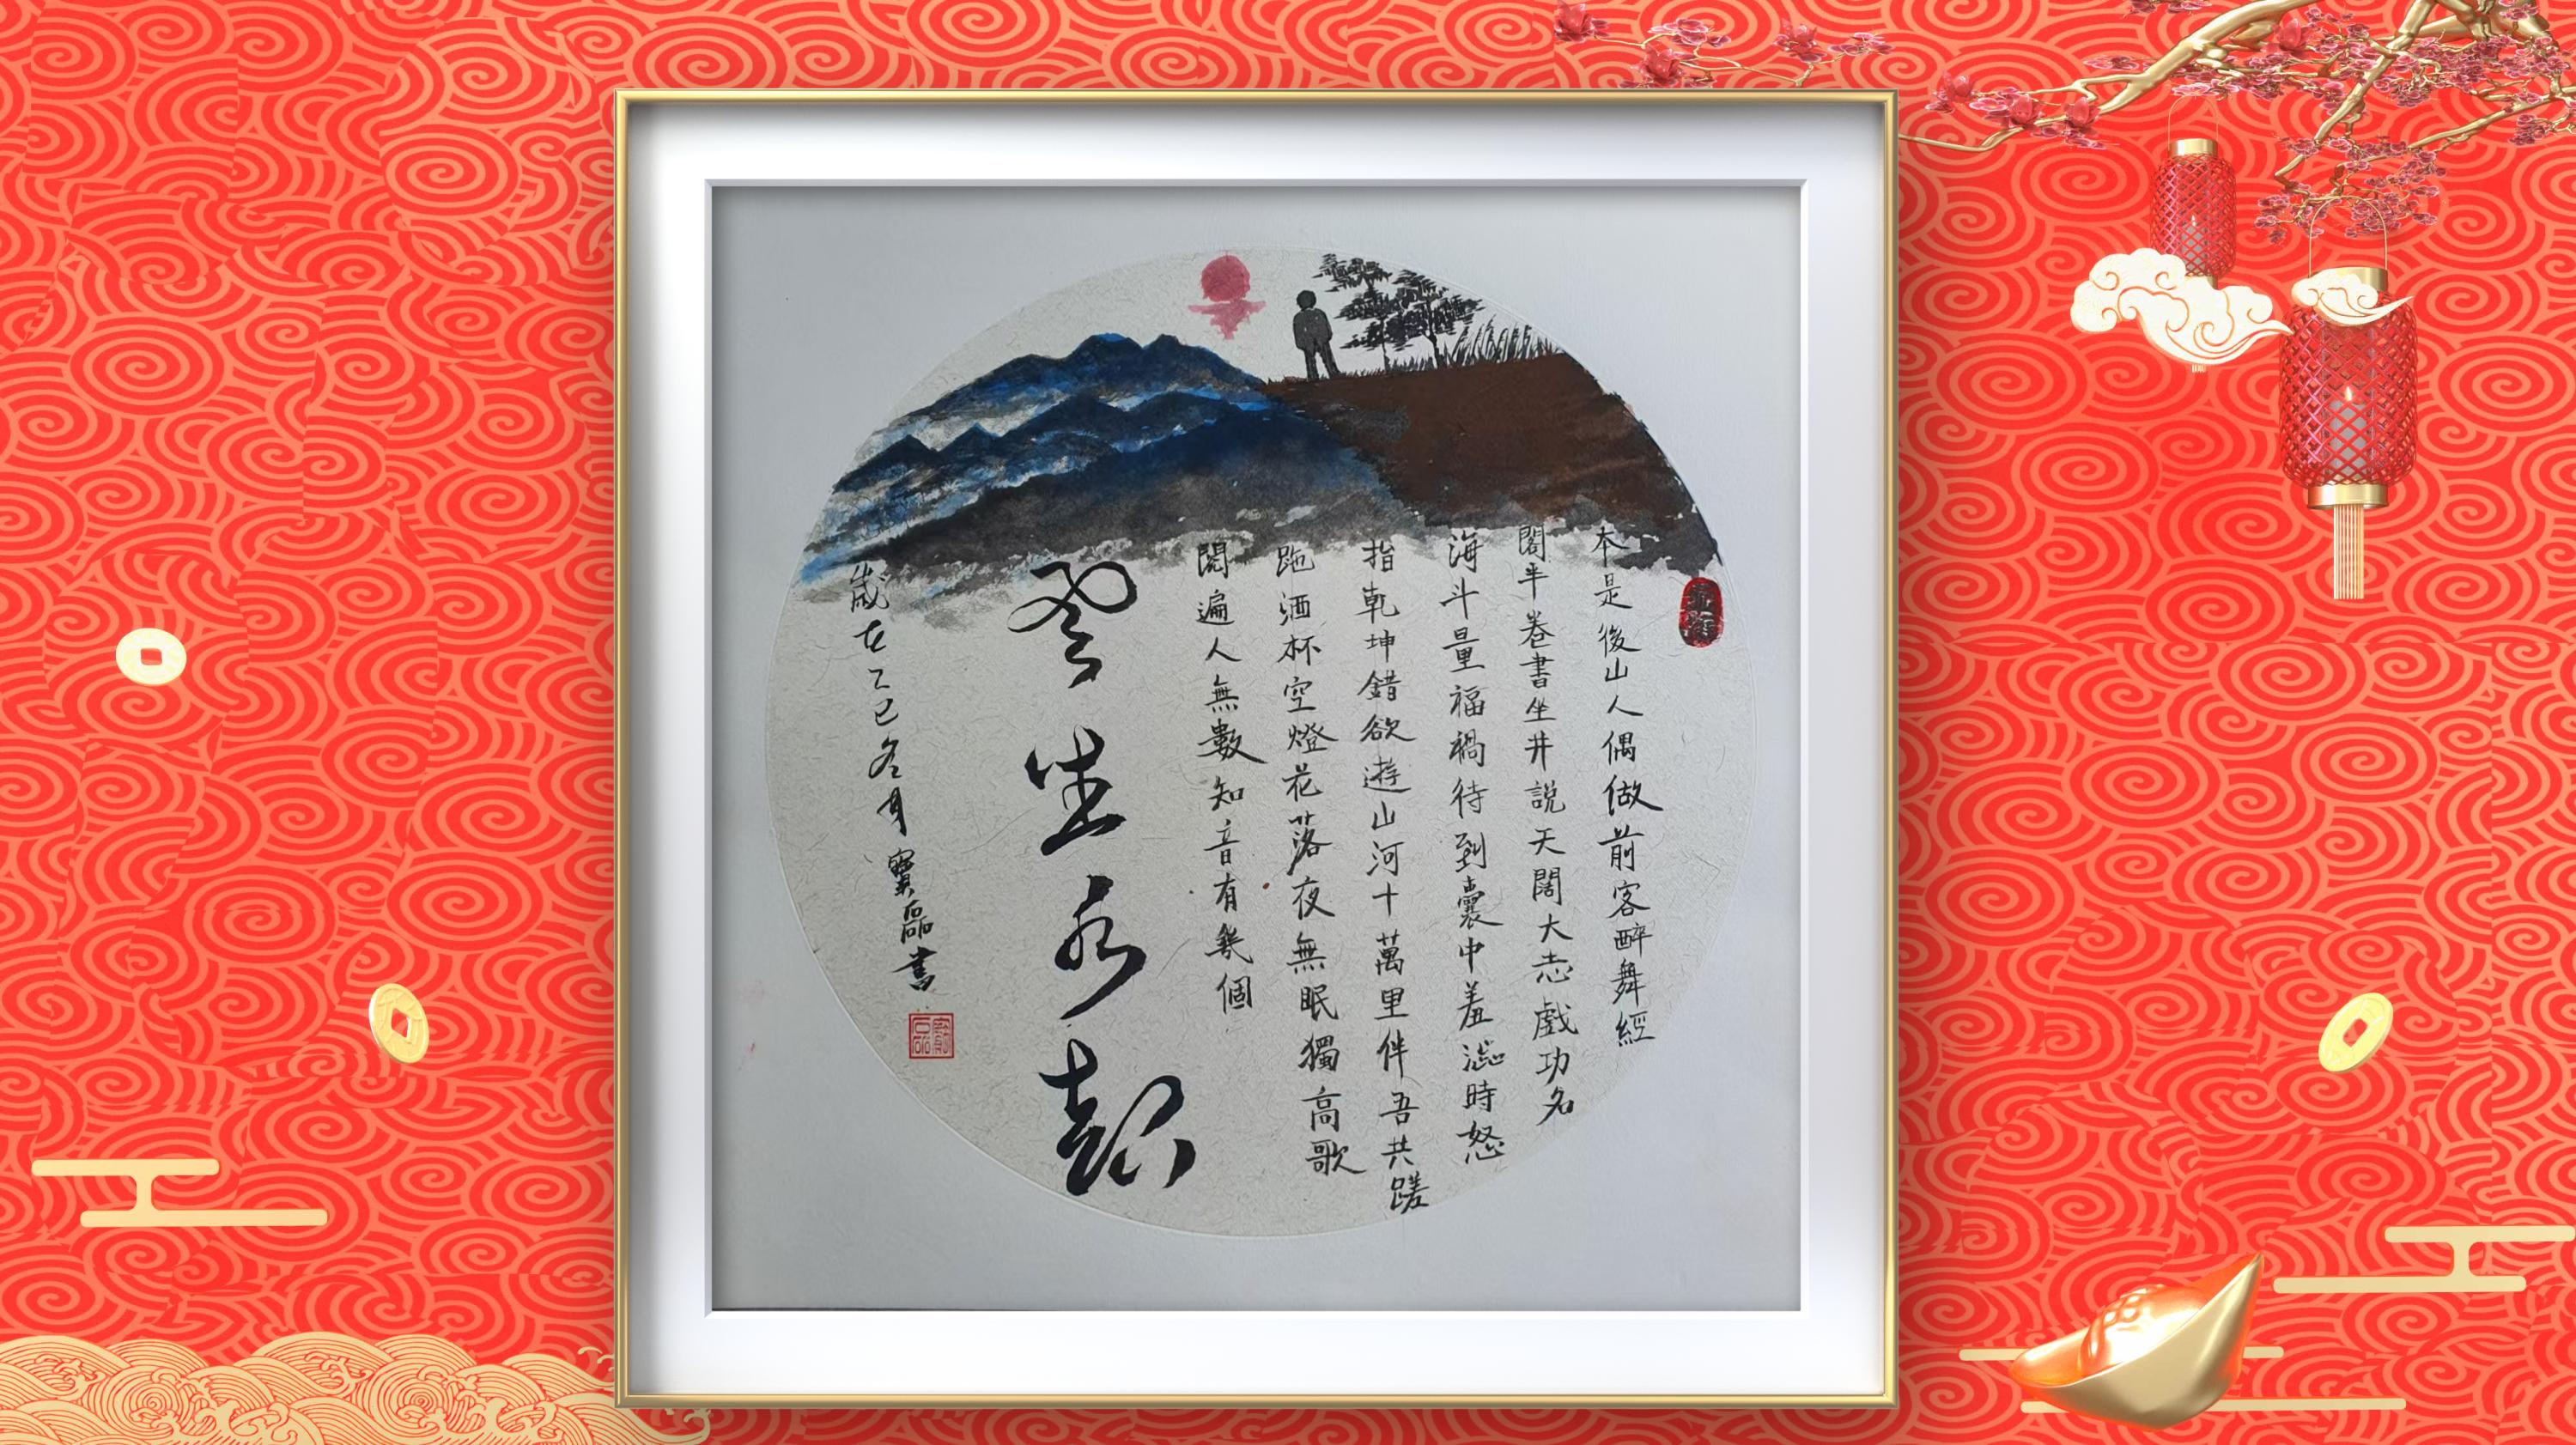 本是後山人偶做前客醉舞經
閣半卷書坐井說天闊大志戲功名
海斗量福禍待到囊中羞澁時怒
指乾坤錯欲遊山河十萬里伴吾共蹉
跎酒杯空燈花落夜無眠獨高歌
閱遍人無數知音有幾個
風生水起
歲在乙巳冬月寶磊書